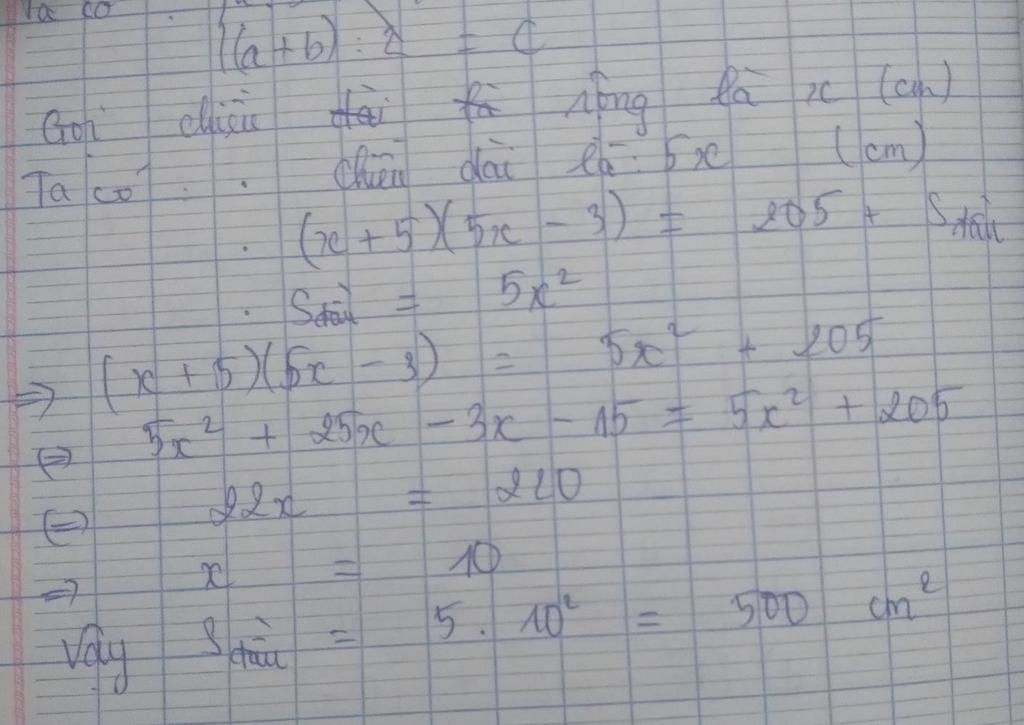 Ta có :
((a+b) : 2 = c
Gọi chiều dài là rộng là x (cm)
Ta có : . Chiều dài là : 5x (cm)
. (x + 5)(5x - 3) = 205 + Sđầu
. Sđầu = 5x²
=> (x + 5)(5x - 3) = 5x² + 205
(=) 5x² + 25x - 3x - 15 = 5x² + 205
(=) 22x = 220
=> x = 10
Vậy Sđầu = 5. 10² = 500 cm²